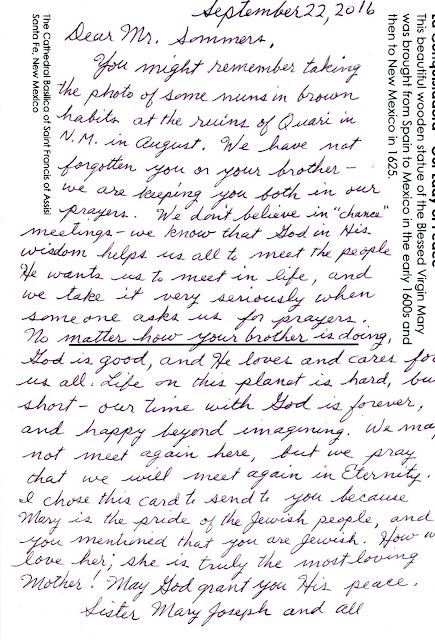 September 22, 2016
Dear Mr. Sommers,
You might remember taking
the photo of some nuns in brown
habits at the ruins of Quari in
N.M. in August. We have not
forgotten you or your brother –
we are keeping you both in our
prayers. We don't believe in "chance"
meetings – we know that God in His
wisdom helps us all to meet the people
He wants us to meet in life, and
we take it very seriously when
someone asks us for prayers.
No matter how your brother is doing,
God is good, and He loves and cares for
us all. Life on this planet is hard, bu
short – our time with God is forever,
and happy beyond imagining. We ma
not meet again here, but we pray
that we will meet again in Eternity.
I chose this card to send to you because
Mary is the pride of the Jewish people, and
you mentioned that you are Jewish. How w
love her; she is truly the most loving
Mother! May God grant you His peace.
Sister Mary Joseph and all
This beautiful wooden statue of the Blessed Virgin Mary
was brought from Spain to Mexico in the early 1600s and
then to New Mexico in 1625.
The Cathedral Basilica of Saint Francis of Assisi
Santa Fe, New Mexico